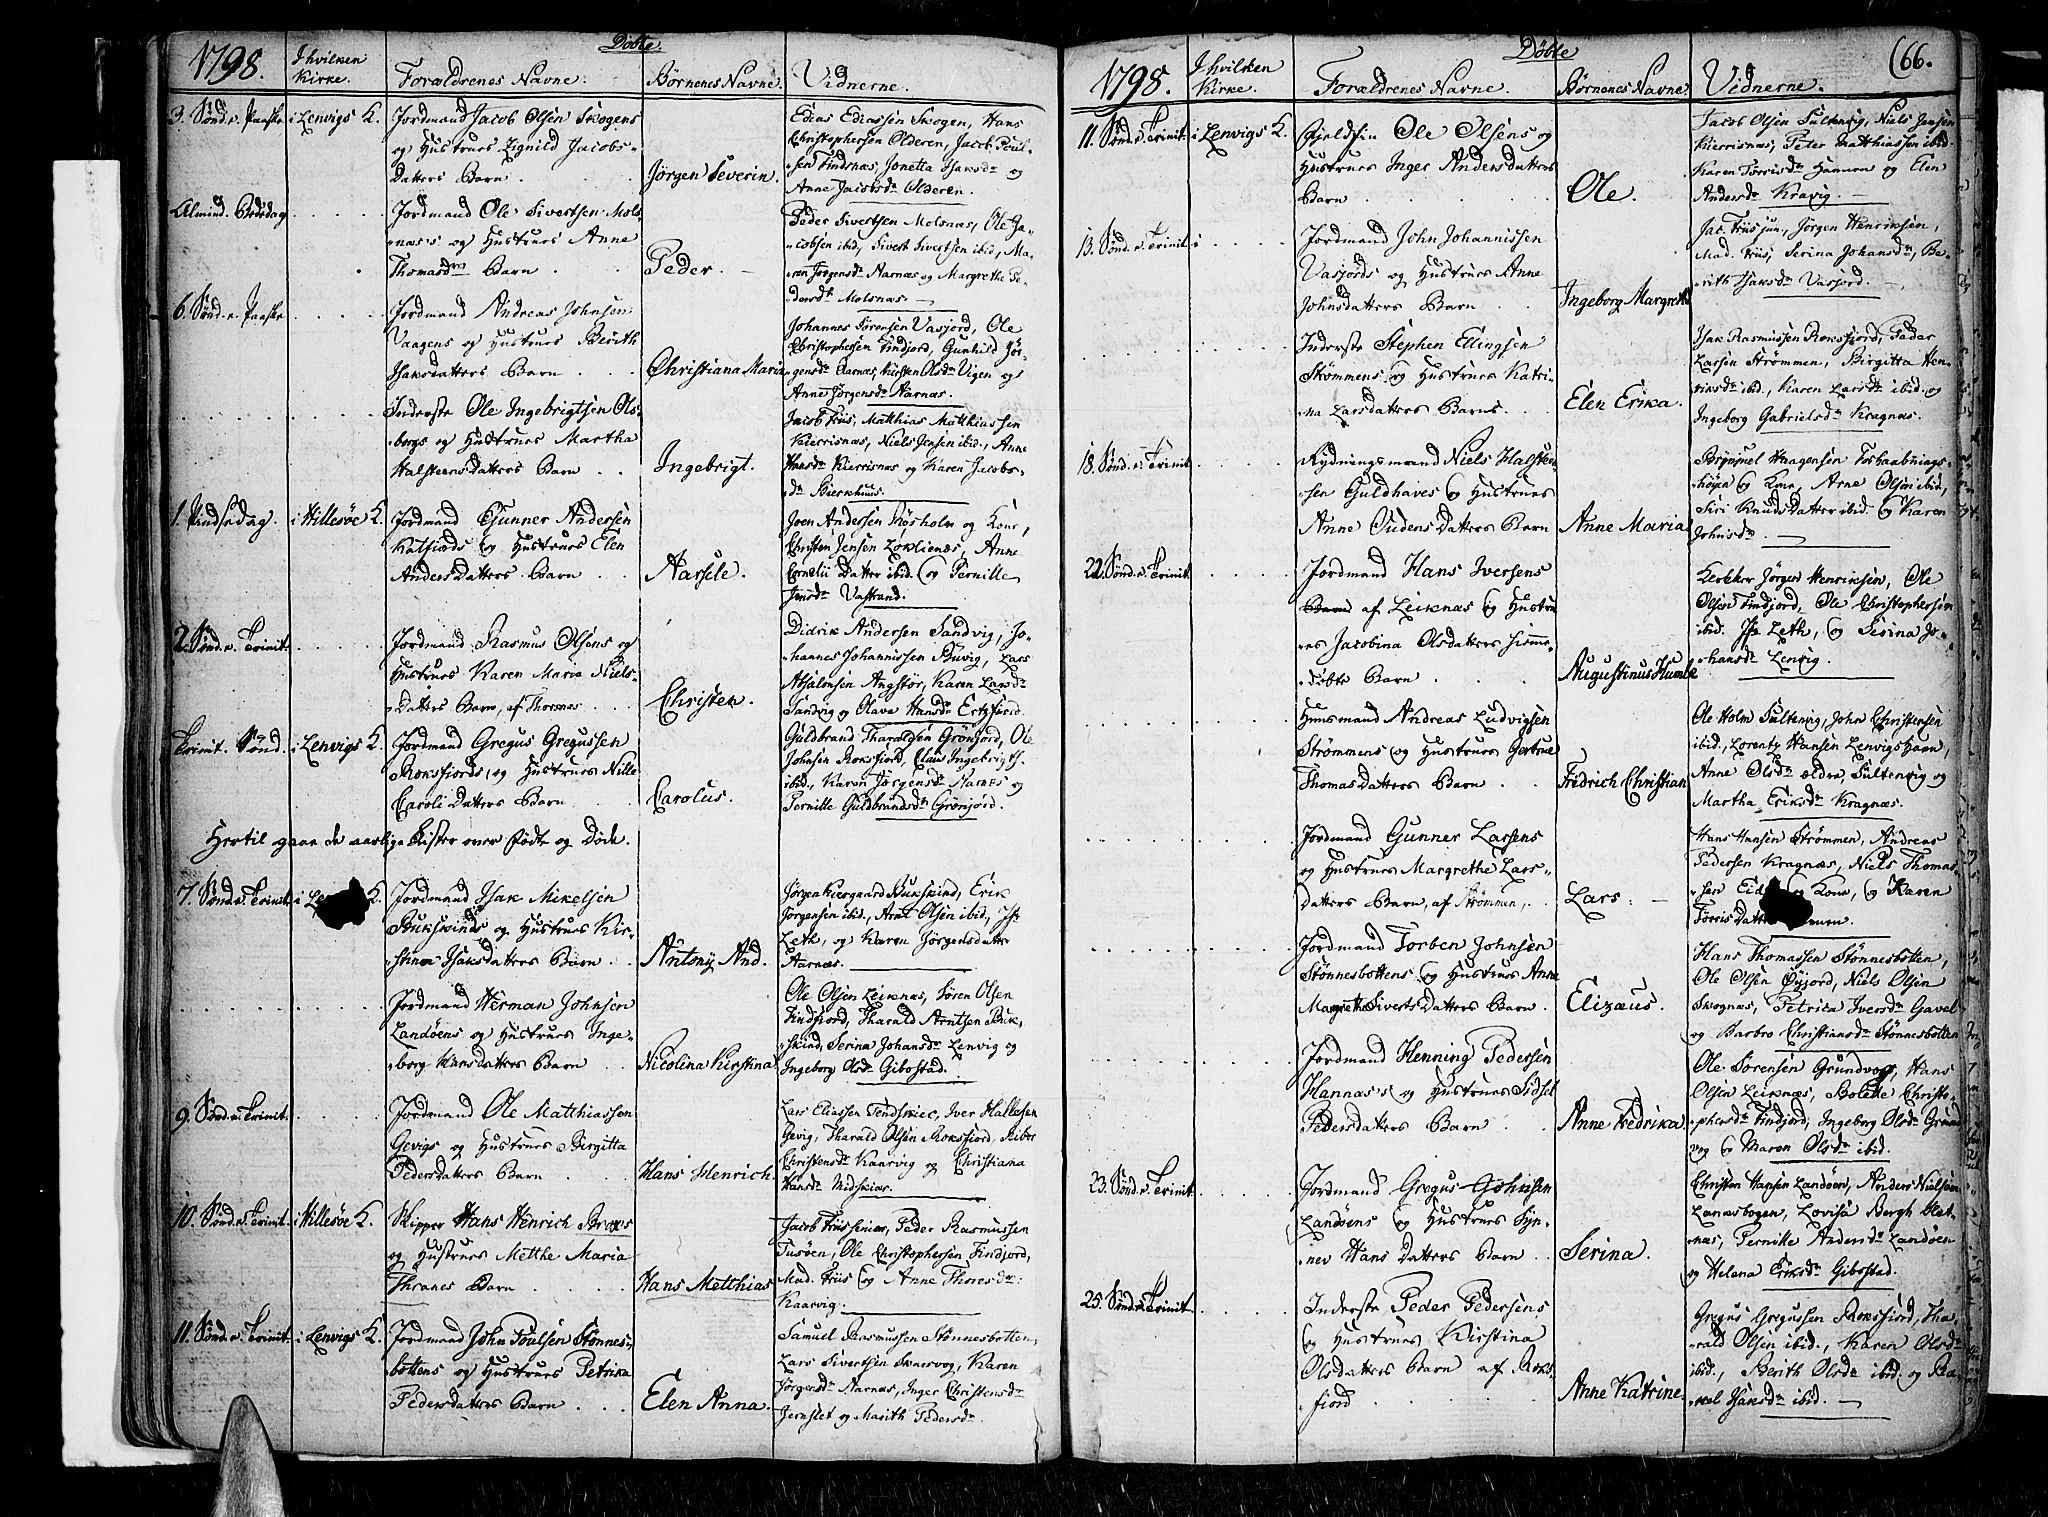 Døbte.
1798.
I hvilken
Kirke.
Forældrenes Navne.
Børnenes Navne.
Vidnerne.
3. Sønd. e. Paaske
i Lenvigs K.
Jordmand Jacob Olsen Skogens
og Hustrues Zignild Jacobs-
Datters Barn
Jørgen Severin.
Edias Ediassen Skogen, Hans
Christophersen Olderen, Jacob Poul-
sen Findsnæs, Jonetta Isaksdr og
Anne Jacobsdr Olderen.
Almind. Bededag
Jordmand Ole Sivertsen Mols-
næs's og Hustrues Anne
Thomasdrs Barn
Peder.
Peder Sivertsen Molsnæs, Ole Ja-
cobsen ibid, Sivert Sivertsen ibid, Ma-
ren Jørgensdr Aarnæs og Margrethe Pe-
dersdr Molsnæs.
6. Sønd. e. Paaske
Jordmand Andreas Johnsen
Vaagens og Hustrues Berith
Isaksdatters Barn
Christiana Maria
Johannes Sørensen Vasjord, Ole
Christophersen Findjord, Gunhild Jør-
gensdr Aarnæs, Kirsten Olsdr Vigen og
Anne Jørgensdr Aarnæs.
Inderste Ole Ingebrigtsen Ols-
borgs og Hustrues Martha
Halstensdatters Barn
Ingebrigt.
Jacob Friis, Matthias Matthiassen
Kierrisnæs, Niels Jensen ibid., Anne
Hansdr Kierrisnæs og Karen Jacobs-
dr Bierkhuus.
1. Pindsedag.
i Hillesøe K.
Jordmand Gunner Andersen
Katfiords og Hustrues Elen
Anders Datters Barn
Aarsele.
Joen Andersen Røsholm og Kone,
Christen Jensen Løklienæs, Anne
Cornelii Datter ibid. og Pernille
Jensdr Vastrand.
2. Sønd. e. Trinit.
Jordmand Rasmus Olsens og
Hustrues Karen Maria Niels-
Datters Barn, af Thorsnæs
Christen.
Didrik Andersen Sandvig, Jo-
hannes Johannissen Buvig, Lars
Absalonsen Angstør, Karen Larsdr
Sandvig og Olava Hansdr Ertsfiord.
Trinit. Sønd.
i Lenvigs K.
Jordmand Gregus Gregussen
Roksfjords, og Hustrues Nille
Caroli Datters Barn
Carolus.
Guldbrand Tharaldsen Grønjord, Ole
Johnsen Roksfjord, Claus Ingebrigts.
ibid., Karen Jørgensdr Aarnæs og
Pernille Guldbrandsdr Grønjord.
Hertil gaae de aarlige Lister over Fødte og Døde.
7. Sønd. e. Trinit.
i Le K.
Jordmand Isak Mikelsen
Bukskinds og Hustrues Kir-
stina Isaksdatters Barn
Antony And.
Jørgen Kiergaard Bukskind, Erik
Jørgensen ibid, Arnt Olsen ibid,
Leth, og Karen Jørgensdatter
Aarnæs.
Jordmand Herman Johnsen
Landøens og Hustrues Inge-
borg Hansdatters Barn
Nicolina Kirstina
Ole Olsen Leiknæs, Søren Olsen
Findfjord, Tharald Arntsen Buk-
skind, Serina Johansdr Lenvig og
Ingeborg Olsdr Gibostad.
9. Sønd. e. Trinit.
Jordmand Ole Matthiassen
Gevigs og Hustrues Birgitta
Pedersdatters Barn
Hans Henrich.
Lars Eliassen Tendskier, Iver Hallesen
Gevig, Tharald Olsen Roksfjord,
Christensdr Kaarvig og Christiana
Hansdr Midskiær.
10. Sønd. e. Trinit.
i Hillesøe K.
Skipper Hans Henrich Broxs
og Hustrues Metthe Maria
Thranes Barn
Hans Matthias
Jacob Friis senior, Peder Rasmussen
Tusøen, Ole Christophersen Findjord,
Mad. Friis og Anne Thoresdr
Kaarvig.
11. Sønd. e. Trinit.
i Lenvigs K.
Jordmand John Poulsen Stønnes-
bottens og Hustrues Petrika
Pedersdatters Barn
Elen Anna.
Samuel Rasmussen Stønnesbotten,
Lars Sivertsen Skarvog, Karen
Jørgensdr Aarnæs, Inger Christensdr
Jernslet og Marith Pedersdr.
Døbte
(66.
1798.
I hvilken
Kirke.
Forældrenes Navne.
Børnenes Navne
Vidnerne.
11. Sønd. e. Trinit.
i Lenvigs K.
Fjeldfin Ole Olsens og
Hustrues Inger Andersdatters
Barn
Ole.
Jacob Olsen Sultenvig, Niels Jensen
Kierrisnæs, Peter Matthiassen ibid.
Karen Torrisdr Hannen og Elen
Andersdr Kravig.
13. Sønd. e. Trinit.
i
Jordmand John Johannissen
Vasjords og Hustrues Anne
Johnsdatters Barn
Ingeborg Margreth
Jac. Friis jun., Jørgen Henriksen,
Mad. Friis, Serina Johansdr, Be-
rith Isaksdr Vasjord.
Inderste Stephen Ellingsen
Strømmens og Hustrues Katri-
na Larsdatters Barn
Elen Erika.
Isak Rasmussen Roksfjord, Peder
Larsen Strømmen, Birgitta Hen-
riksdr ibid., Karen Larsdr ibid. og
Ingeborg Gabrielsdr Kragnæs.
18. Sønd. e. Trinit.
Rydningsmand Niels Halsten-
sen Guldhaves og Hustrues
Anne Audens Datters Barn
Anne Maria
Brynmel Haagensen Forhaabnings-
høyen og Kone, Arne Olsen ibid,
Siri Knuds Datter ibid. og Karen
Johnsdr.
22. Sønd. e. Trinit.
Jordmand Hans Iversens
Barn af Leiknæs og Hustru-
es Jacobina Olsdatters hiemme-
døbte Barn
Augustinus Humble
Kirkekar Jørgen Henriksen, Ole
Olsen Findjord, Ole Christophersen
ibid. Leth, og Serina Jo-
hansdr Lenvig.
Huusmand Andreas Ludvigsen
Strømmens og Hustrues Gertrue
Thomas Datters Barn
Fredrich Christian
Ole Holm Sultenvig, John Christensen
ibid., Lorentz Hansen Lenvigshavn,
Anne Olsdr ældre, Sultenvig og
Martha Eriksdr Kragnæs.
Jordmand Gunner Larsens
og Hustrues Margrethe Lars-
Datters Barn, af Strømmen,
Lars.
Hans Hansen Strømmen, Andreas
Pedersen Kragnæs, Niels Thomas-
sen Eid og Kone, og Karen
Torris Datter
Jordmand Torben Johnsen
Stønnesbottens og Hustrues Anne
Margrethe Siverts Datters Barn
Elizæus.
Hans Thomassen Stønnesbotten,
Ole Olsen Øyjord, Niels Olsen
Skognæs, Petrica Iversdr Gavel
og Barbro Christiansdr Stønnesbotten
Jordmand Henning Pedersen
Hannæs's og Hustrues Sidsel
Pedersdatters Barn
Anne Fredrika
Ole Sørensen Grundvog, Hans
Olsen Leiknæs, Bolette Christo-
phersdr Findjord, Ingeborg Olsdr Grund
vog og Maren Olsdr ibid.
23. Sønd. e. Trinit.
Jordmand Gregus Johnsen
Landøens og Hustrues Syn-
nev Hans Datters Barn
Serina.
Christen Hansen Landøen, Anders Nielsen
Lanæsbogen, Lovisa Bergh Klet-
næs, Pernike Andersdr Landøen
og Helena Eriksdr Gibostad.
25. Sønd. e. Trinit.
Inderste Peder Pedersens
og Hustrues Kirstina
Olsdatters Barn af Roks-
fjord
Anne Katrine.
Gregus Gregussen Roksfjord, Tha-
rald Olsen ibid., Karen Olsdr
ibid., Berith Olsdr ibid. og Ra-
kel Isaksdr ibid.